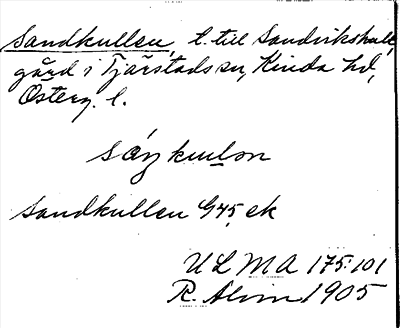 Sandkullen, t. till Sandvikshult,
gård i Tjärstads sn, Kinda hd,
Österg. l.
Sandkullen G 45, ek
ULMA 175:101
R. Alvin 1905